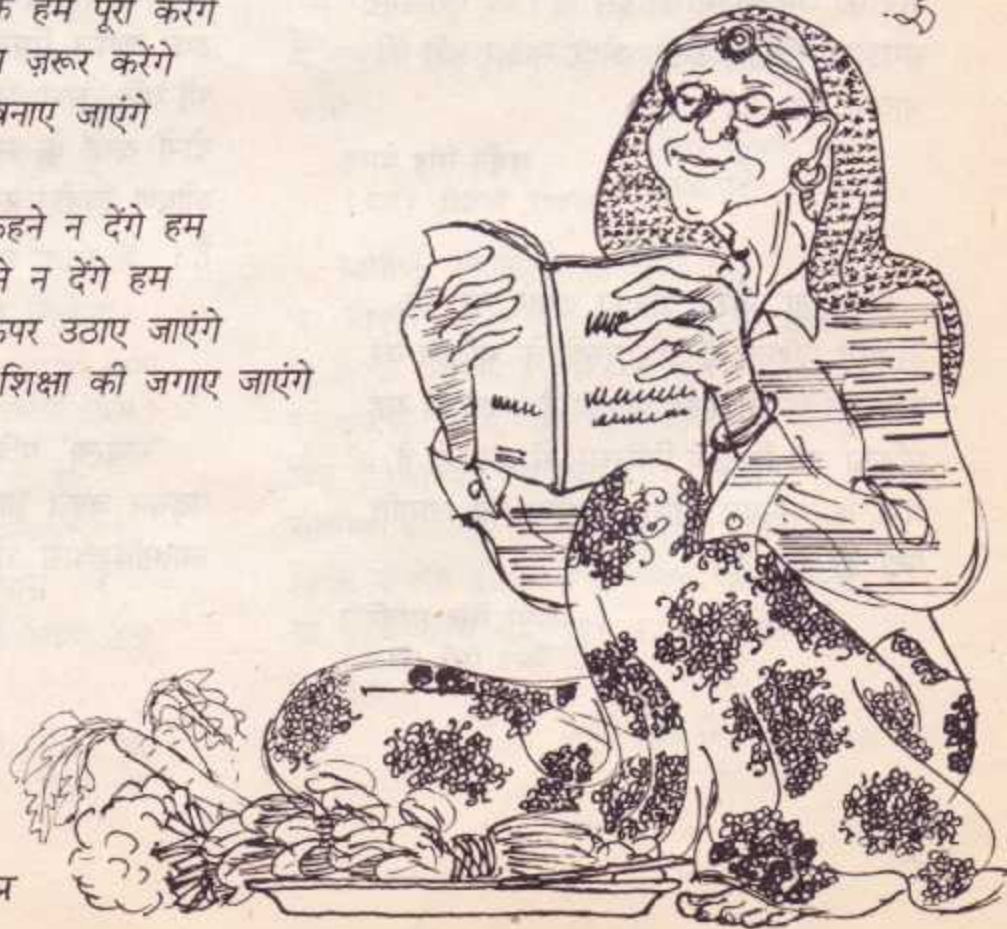 हम पूरा करेंगे
ज़रूर करेंगे
बनाए जाएंगे
कहने न देंगे हम
न देंगे हम
ऊपर उठाए जाएंगे
शिक्षा की जगाए जाएंगे